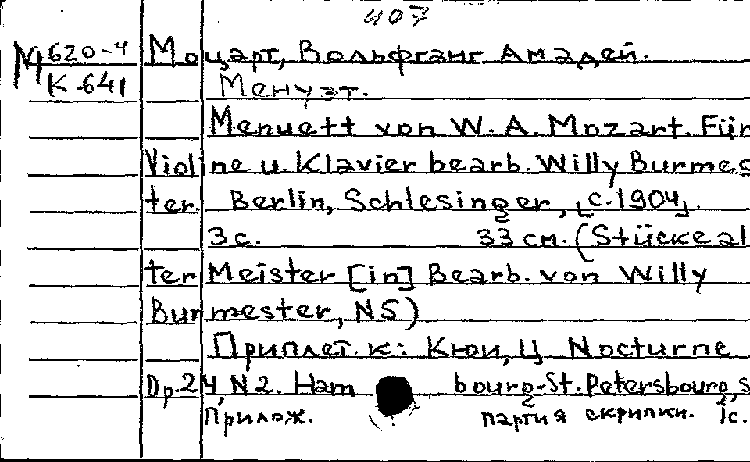 407
М 620-4 Моцарт, Вольфганг Амадей.
К 641 Менуэт.
Menuett von W. A. Mozart. Für
Violine u. Klavier bearb. Willy Burmes
ter. Berlin, Schlesinger, [c. 1904].
3 с. 33 см. (Stücke al
ter Meister [in] Bearb. von Willy
Burmester, N5)
Приплет. к: Кюи, Ц. Nocturne
Op. 24, N2. Ham bourg-St. Petersbourg, s
Прилож. партия скрипки. 1с.